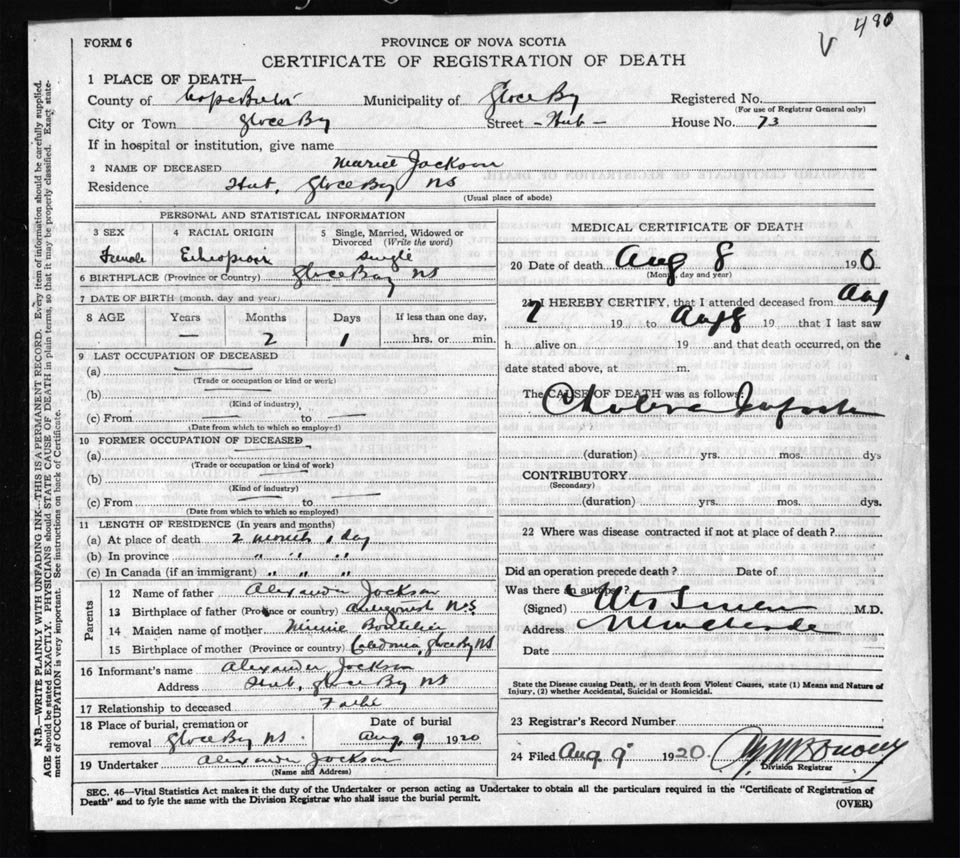 480
V
FORM 6
PROVINCE OF NOVA SCOTIA
CERTIFICATE OF REGISTRATION OF DEATH
1 PLACE OF DEATH—
County of Cape Breton Municipality of Glace Bay Registered No.
(For use of Registrar General only)
City or Town Glace Bay Street - Hub - House No. 73
If in hospital or institution, give name
2 NAME OF DECEASED Jackson
Residence Hub, Glace Bay NS
(Usual place of abode)
PERSONAL AND STATISTICAL INFORMATION
3 SEX 4 RACIAL ORIGIN 5 Single, Married, Widowed or Divorced (Write the word)
Female Ethiopian single
6 BIRTHPLACE (Province or Country) Glace Bay NS
7 DATE OF BIRTH (month, day and year)
8 AGE Years Months Days If less than one day,
— 2 1 hrs. or min.
9 LAST OCCUPATION OF DECEASED
(a) —
(Trade or occupation or kind or work)
(b) —
(Kind of industry)
(c) From — to —
(Date from which to which so employed)
10 FORMER OCCUPATION OF DECEASED
(a) —
(Trade or occupation or kind of work)
(b) —
(Kind of industry)
(c) From — to —
(Date from which to which so employed)
11 LENGTH OF RESIDENCE (In years and months)
(a) At place of death 2 months 1 day
(b) In province " " "
(c) In Canada (if an immigrant) " " "
Parents
12 Name of father Alexander Jackson
13 Birthplace of father (Province or country) Antigonish N.S.
14 Maiden name of mother Minnie Boutilier
15 Birthplace of mother (Province or country) Glace Bay NS
16 Informant's name Alexander Jackson
Address Hub, Glace Bay NS
17 Relationship to deceased Father
18 Place of burial, cremation or removal Glace Bay NS Date of burial Aug 9 1920
19 Undertaker Alexander Jackson
(Name and Address)
MEDICAL CERTIFICATE OF DEATH
20 Date of death Aug 8 19
(Month, day and year)
21 I HEREBY CERTIFY, that I attended deceased from Aug
7 19 to Aug 8 19 that I last saw
h alive on 19 and that death occurred, on the
date stated above, at m.
The CAUSE OF DEATH was as follows:
Cholera Infantum
(duration) yrs. mos. dys
CONTRIBUTORY
(Secondary)
(duration) yrs. mos. dys.
22 Where was disease contracted if not at place of death?
Did an operation precede death? Date of
Was there an autopsy?
(Signed) M.D.
Address
Date
State the Disease causing Death, or in death from Violent Causes, state (1) Means and Nature of Injury, (2) whether Accidental, Suicidal or Homicidal.
23 Registrar's Record Number
24 Filed Aug 9 1920
Division Registrar
SEC. 46—Vital Statistics Act makes it the duty of the Undertaker or person acting as Undertaker to obtain all the particulars required in the "Certificate of Registration of
Death" and to fyle the same with the Division Registrar who shall issue the burial permit.
(OVER)
N.B.—WRITE PLAINLY WITH UNFADING INK—THIS IS A PERMANENT RECORD. Every item of information should be carefully supplied.
AGE should be stated EXACTLY. PHYSICIANS should STATE CAUSE OF DEATH in plain terms, so that it may be properly classified. Exact state-
ment of OCCUPATION is very important. See instructions on back of Certificate.